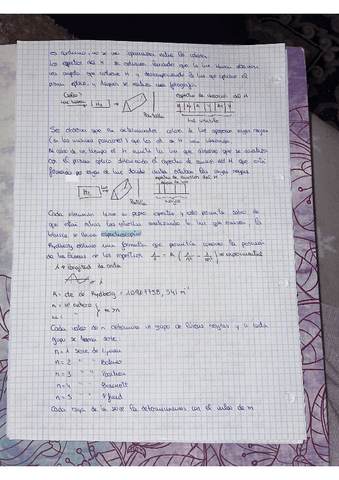 es continuo, no se ven separaciones entre los colores.
Los espectros del H se obtienen haciendo que la luz blanca atraviese
una ampolla que contiene H y descomponiendo la luz que obtiene el
prisma óptico y después se realiza una fotografía.
Color?
luz blanca H2
espectro de absorción del H
Pantalla
luz visible
Se observa que en determinados colores de los aparecen rayas negras
Al cabo de un tiempo el H emite la luz que absorbe que se analiza
con el prisma óptico obteniendo el espectro de emisión del H que está
formado por rayas de luz donde antes estaban las rayas negras
espectro de emisión del H
H2 luz
Pantalla
Cada elemento tiene su propio espectro y esto permite saber de
que están hechas las estrellas analizando la luz que emiten. La
técnica se llama espectroscopia
Rydberg obtuvo una fórmula que permitía conocer la posición
de las líneas de los espectros 1/λ = R (1/n² - 1/m²) → experimental
λ → longitud de onda
λ
R = cte de Rydberg = 10967758, 341 m⁻¹
n = nº entero
m = } m > n
Cada valor de n determina un grupo de líneas negras y a cada
grupo se llama serie.
n = 1 serie de Lyman
n = 2 " " Balmer
n = 3 " " Paschen
n = 4 " " Brackett
n = 5 " " Pfund
Cada raya de la serie la determinamos con el valor de m